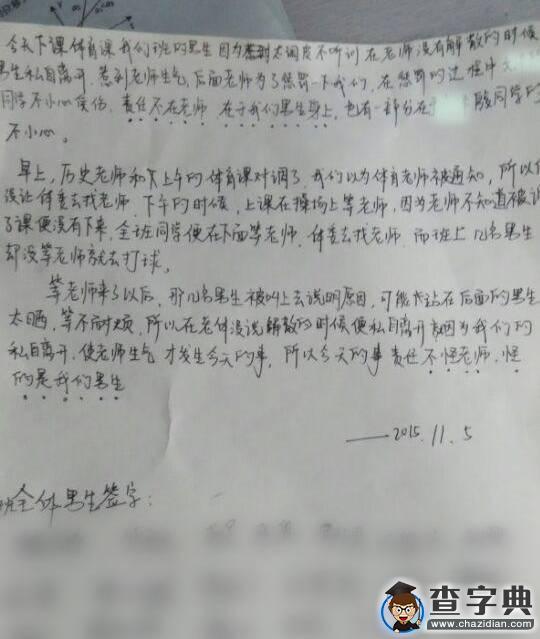 今天下课体育课我们班的男生因为态度太调皮不听训在老师没有解散的时候
男生私自离开,惹到老师生气,后面老师为了惩罚一下我们,在惩罚的过程中
同学不小心受伤,责任不在老师 在于我们男生身上,也有一部分在 骏同学的
不小心。
早上,历史老师和下午的体育课对调了,我们以为体育老师被通知,所以
没让体委去找老师,下午的时候,上课在操场上等老师,因为老师不知道被调
了课便没有下来,全班同学便在下面等老师.体委去找老师,而班上几名男生
却没等老师就去打球。
等老师来了以后,那几名男生被叫上去说明原因,可能我站在后面的男生
太晒,等不耐烦,所以在老师没说解散的时候便私自离开 因为我们的
私自离开,使老师生气才发生今天的事,所以今天的事责任不怪老师,怪
的是我们男生
——2015.11.5
班全体男生签字:
查字典
www.chazidian.com